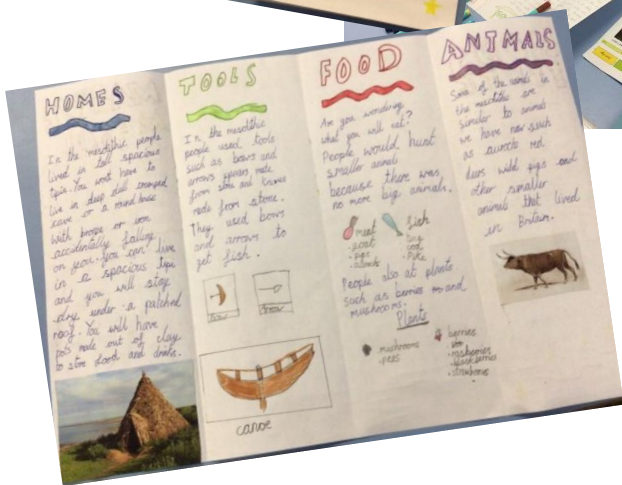 HOMES
In the mesolithic people
lived in tall spacious
tipis. You wont have to
live in deep dull cramped
cave or a round house
With bronze or iron
accidentally falling
on you. You can live
in a spacious tipi
and you will stay
dry under a patched
roof. You will have
pots made out of clay
to store food and drinks.
TOOLS
In the mesolithic
people used tools
such as bows and
arrows spears made
from stone and knives
made from stone.
They used bows
and arrows to
get fish.
canoe
FOOD
Are you wondering
what you will eat?
People would hunt
smaller animals
because there was
no more big animals.
meat
goat
pigs
fish
cod
People also at plants
such as berries and
mushrooms.
Plants
mushrooms
peas
berries
raspberries
blackberries
ANIMALS
Some of the animals in
the mesolithic are
similar to animals
we have now such
as aurochs red
deers wild pigs and
other smaller
animals that lived
in Britain.